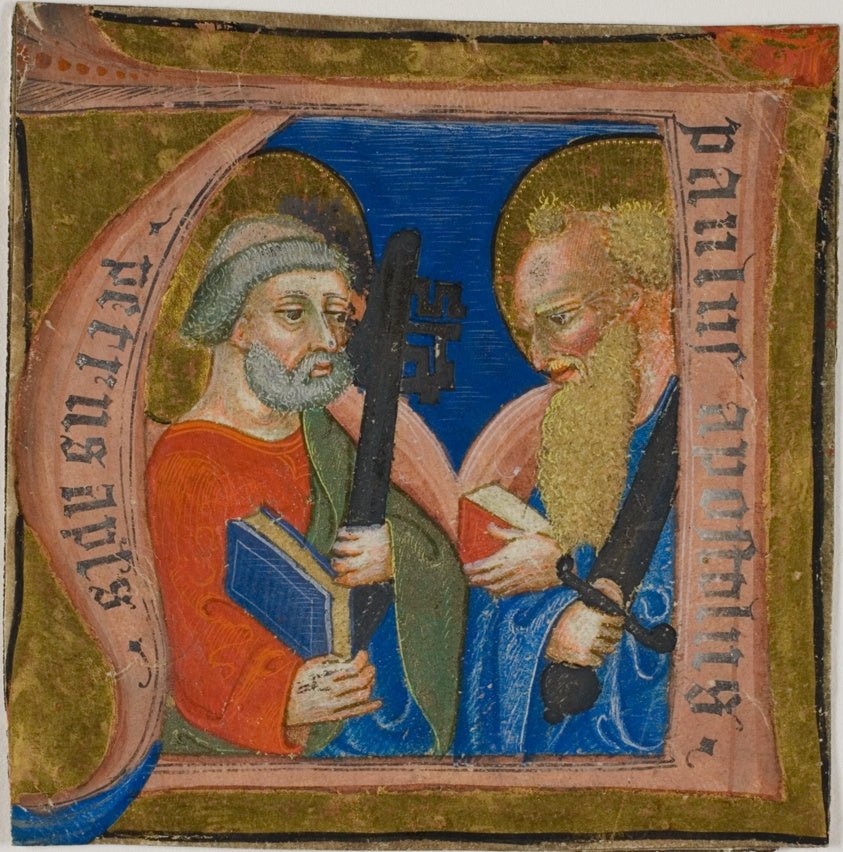 · petrus apls ·
paulus apostolus ·